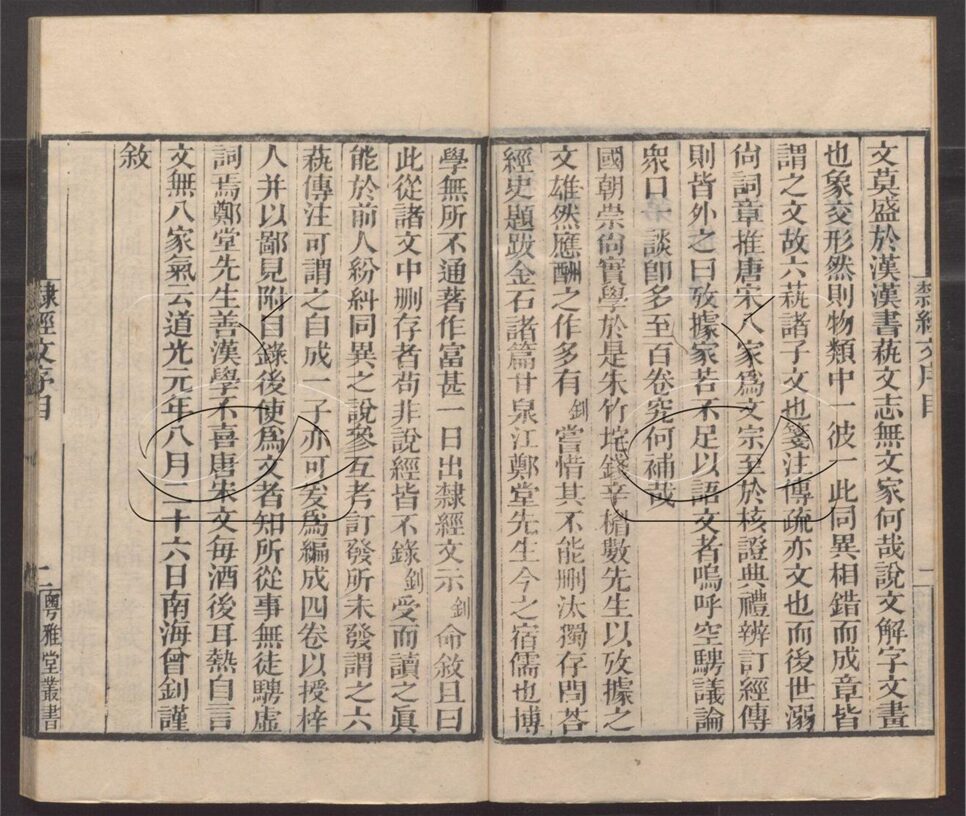 隸經文序目
一
文莫盛於漢漢書蓺文志無文家何哉說文解字文畫
也象交形然則物類中一彼一此同異相錯而成章皆
謂之文故六蓺諸子文也箋注傳疏亦文也而後世溺
尙詞章推唐宋八家爲文宗至於核證典禮辨訂經傳
則皆外之曰攷據家若不足以語文者嗚呼空騁議論
衆口 談卽多至百卷究何補哉
國朝崇尙實學於是朱竹垞錢辛楣數先生以攷據之
文雄然應酬之作多有釗嘗惜其不能刪汰獨存問荅
經史題跋金石諸篇甘泉江鄭堂先生今之宿儒也博
學無所不通著作富甚一日出隸經文示釗命敘且曰
此從諸文中刪存者苟非說經皆不錄釗受而讀之眞
能於前人紛糾同異之說參互考訂發所未發謂之六
蓺傳注可謂之自成一子亦可爰爲編成四卷以授梓
人并以鄙見附目錄後使爲文者知所從事無徒騁虛
詞焉鄭堂先生善漢學不喜唐宋文每酒後耳熱自言
文無八家氣云道光元年八月二十六日南海曾釗謹
敘
隸經文序目
二
粵雅堂叢書